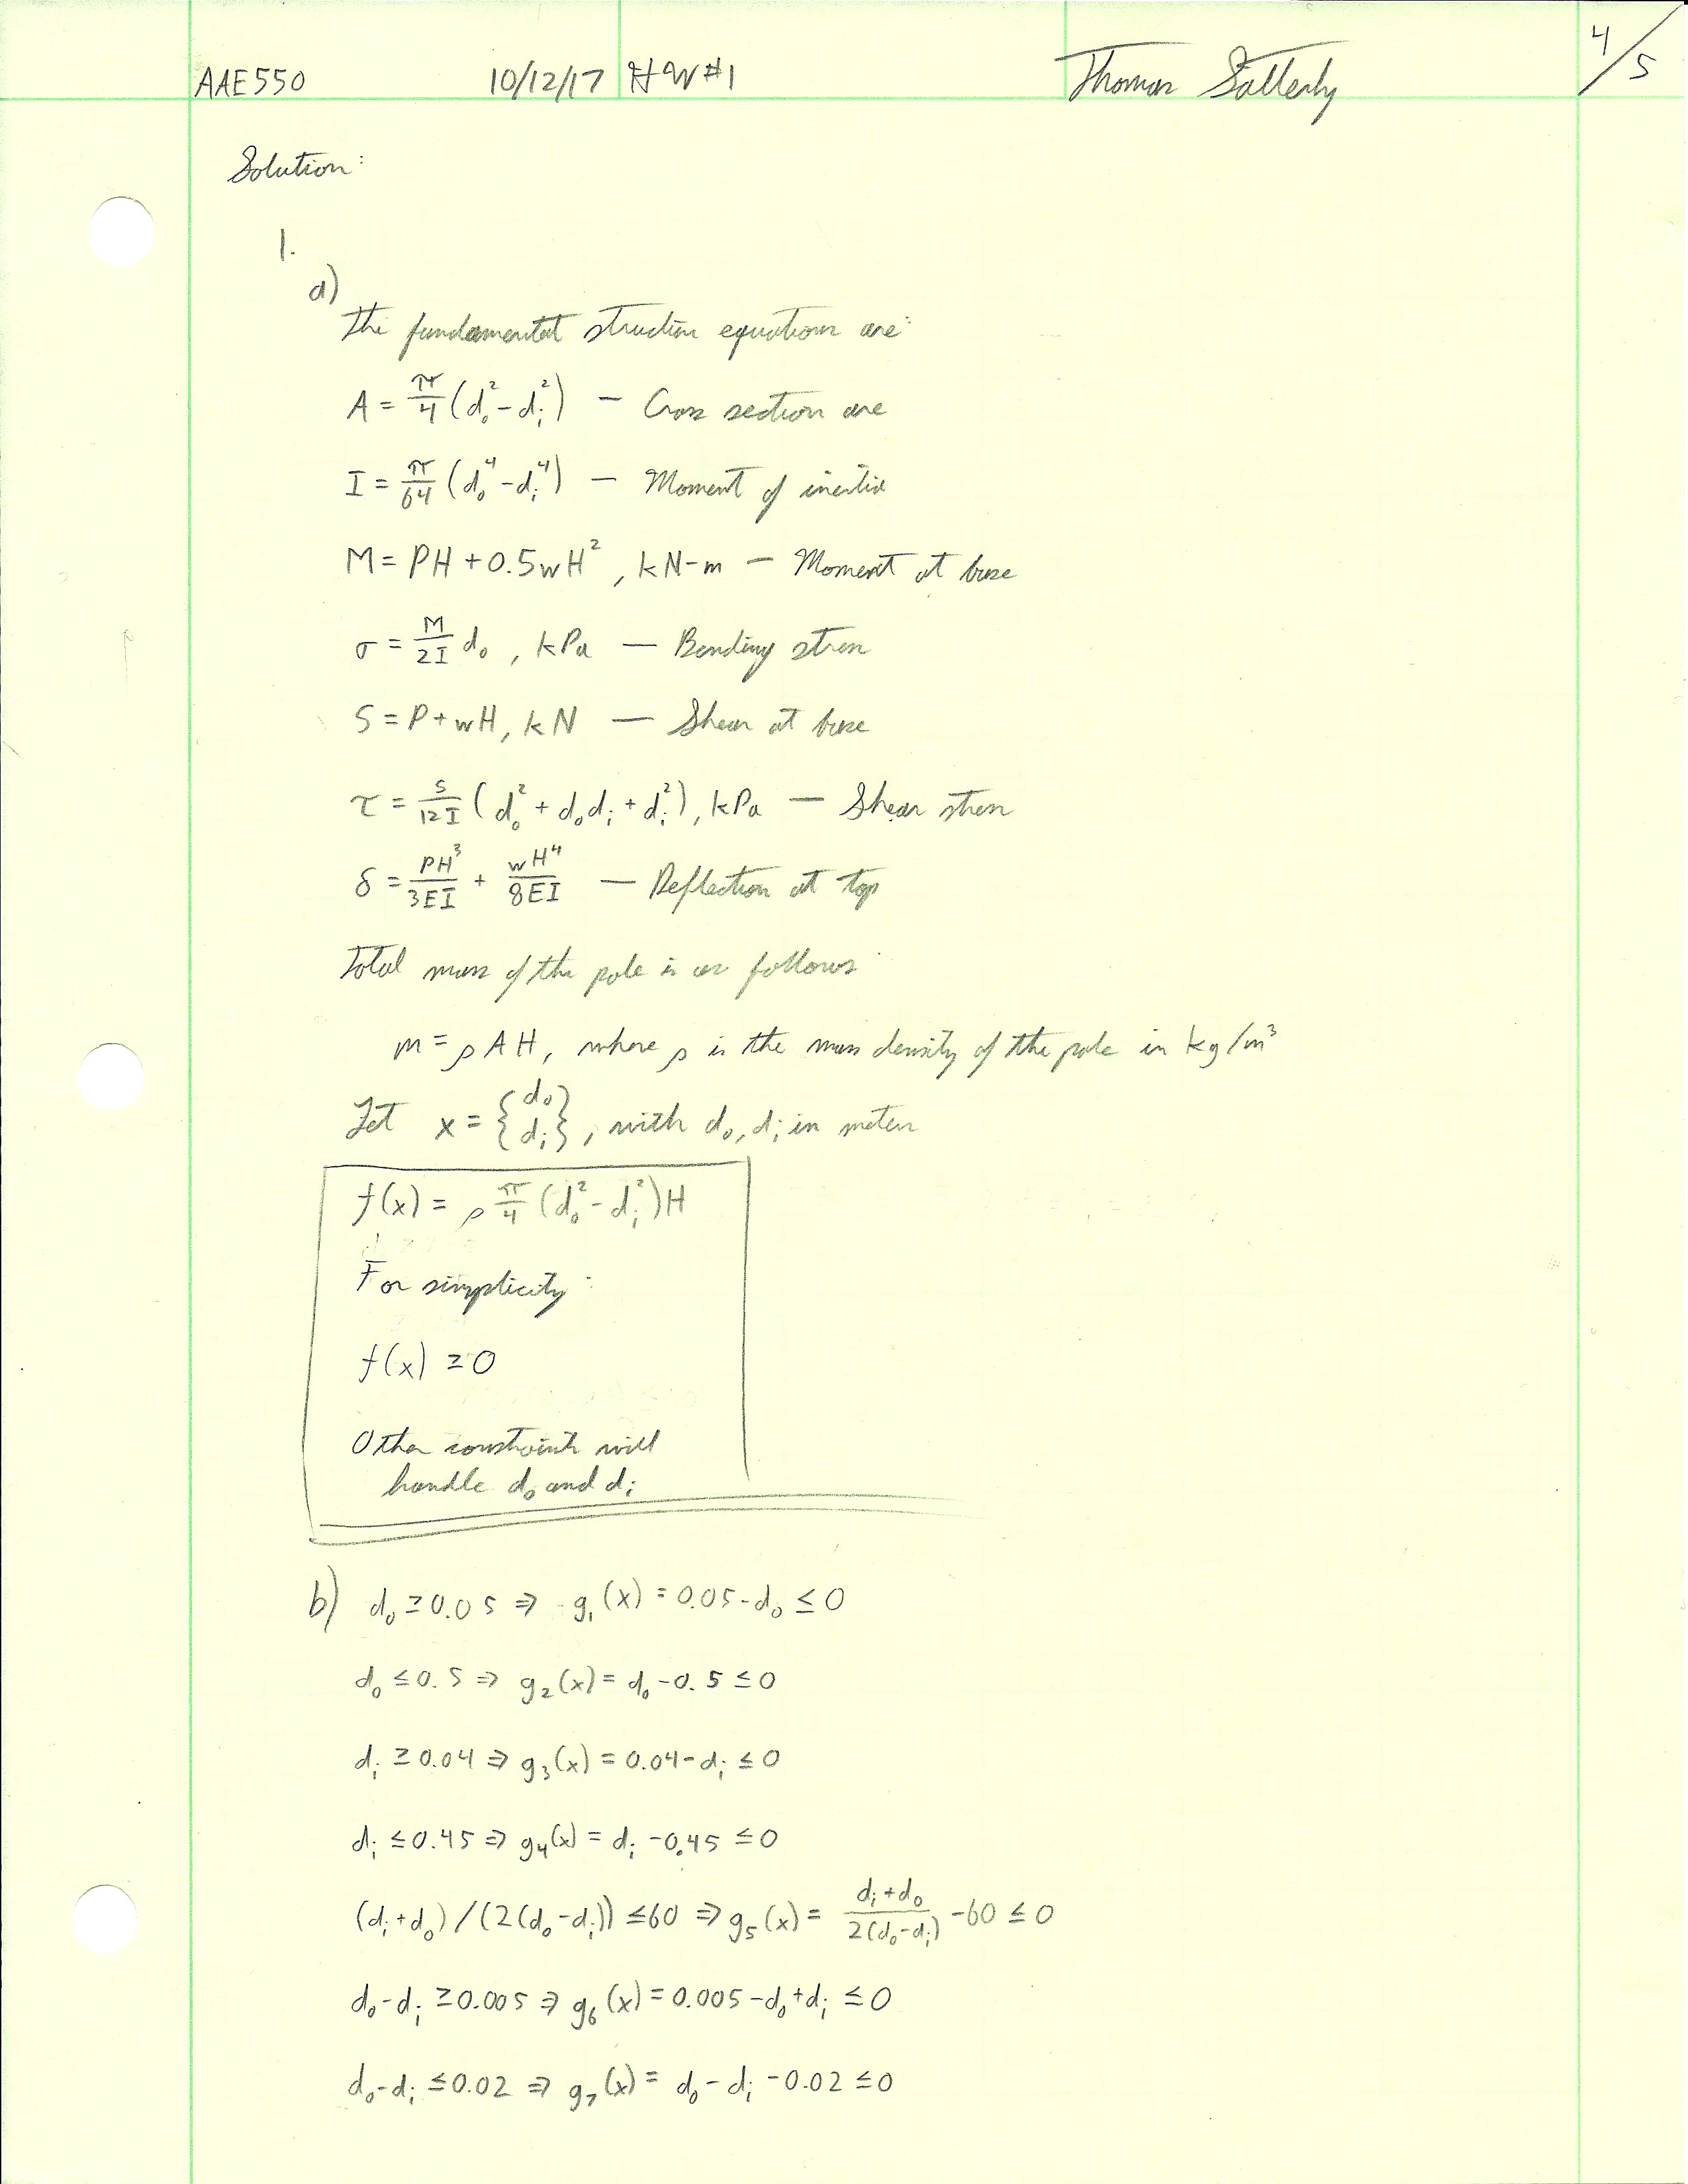 AAE550 10/12/17 HW#1 Thomas Satterly 4/5
Solution:
1.
a)
The fundamental struction equations are:
A = π/4 (d₀² - dᵢ²) — Cross section are
I = π/64 (d₀⁴ - dᵢ⁴) — Moment of inertia
M = PH + 0.5wH², kN-m — Moment at base
σ = M/2I d₀, kPa — Bending stress
S = P + wH, kN — Shear at base
τ = S/12I (d₀² + d₀dᵢ + dᵢ²), kPa — Shear stress
δ = PH³/3EI + wH⁴/8EI — Deflection at top
Total mass of the pole is as follows
m = ρAH, where ρ is the mass density of the pole in kg/m³
Let x = {d₀ dᵢ}, with d₀, dᵢ in meters
f(x) = ρ π/4 (d₀² - dᵢ²)H
For simplicity:
f(x) ≥ 0
Other constraints will
handle d₀ and dᵢ
b) d₀ ≥ 0.05 ⇒ g₁(x) = 0.05 - d₀ ≤ 0
d₀ ≤ 0.5 ⇒ g₂(x) = d₀ - 0.5 ≤ 0
dᵢ ≥ 0.04 ⇒ g₃(x) = 0.04 - dᵢ ≤ 0
dᵢ ≤ 0.45 ⇒ g₄(x) = dᵢ - 0.45 ≤ 0
(dᵢ + d₀)/(2(d₀ - dᵢ)) ≤ 60 ⇒ g₅(x) = dᵢ + d₀ / 2(d₀ - dᵢ) - 60 ≤ 0
d₀ - dᵢ ≥ 0.005 ⇒ g₆(x) = 0.005 - d₀ + dᵢ ≤ 0
d₀ - dᵢ ≤ 0.02 ⇒ g₇(x) = d₀ - dᵢ - 0.02 ≤ 0